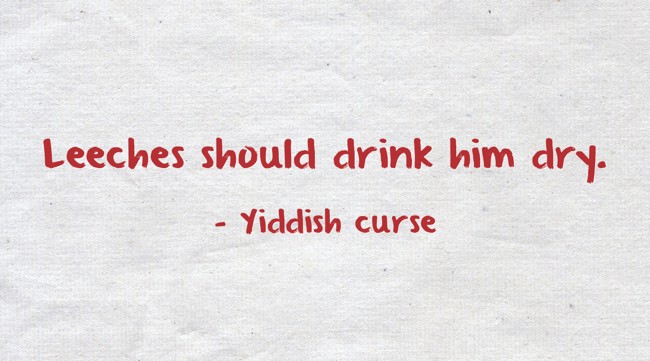 Leeches should drink him dry.
- Yiddish curse